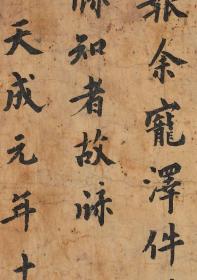 余寵澤件
牒知者故牒
天成元年十